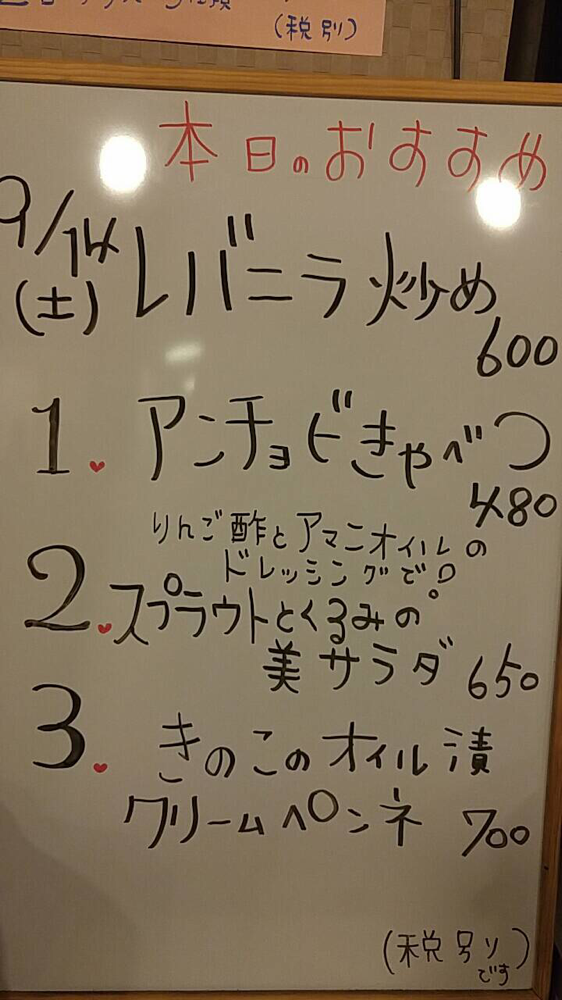 (税別)
本日のおすすめ
9/14
(土)
レバニラ炒め
600
1. アンチョビきゃべつ
480
りんご酢とアマニオイルの
ドレッシングで!!
2. スプラウトとくるみの
美サラダ 650
3. きのこのオイル漬
クリームペンネ 700
(税別り
です)